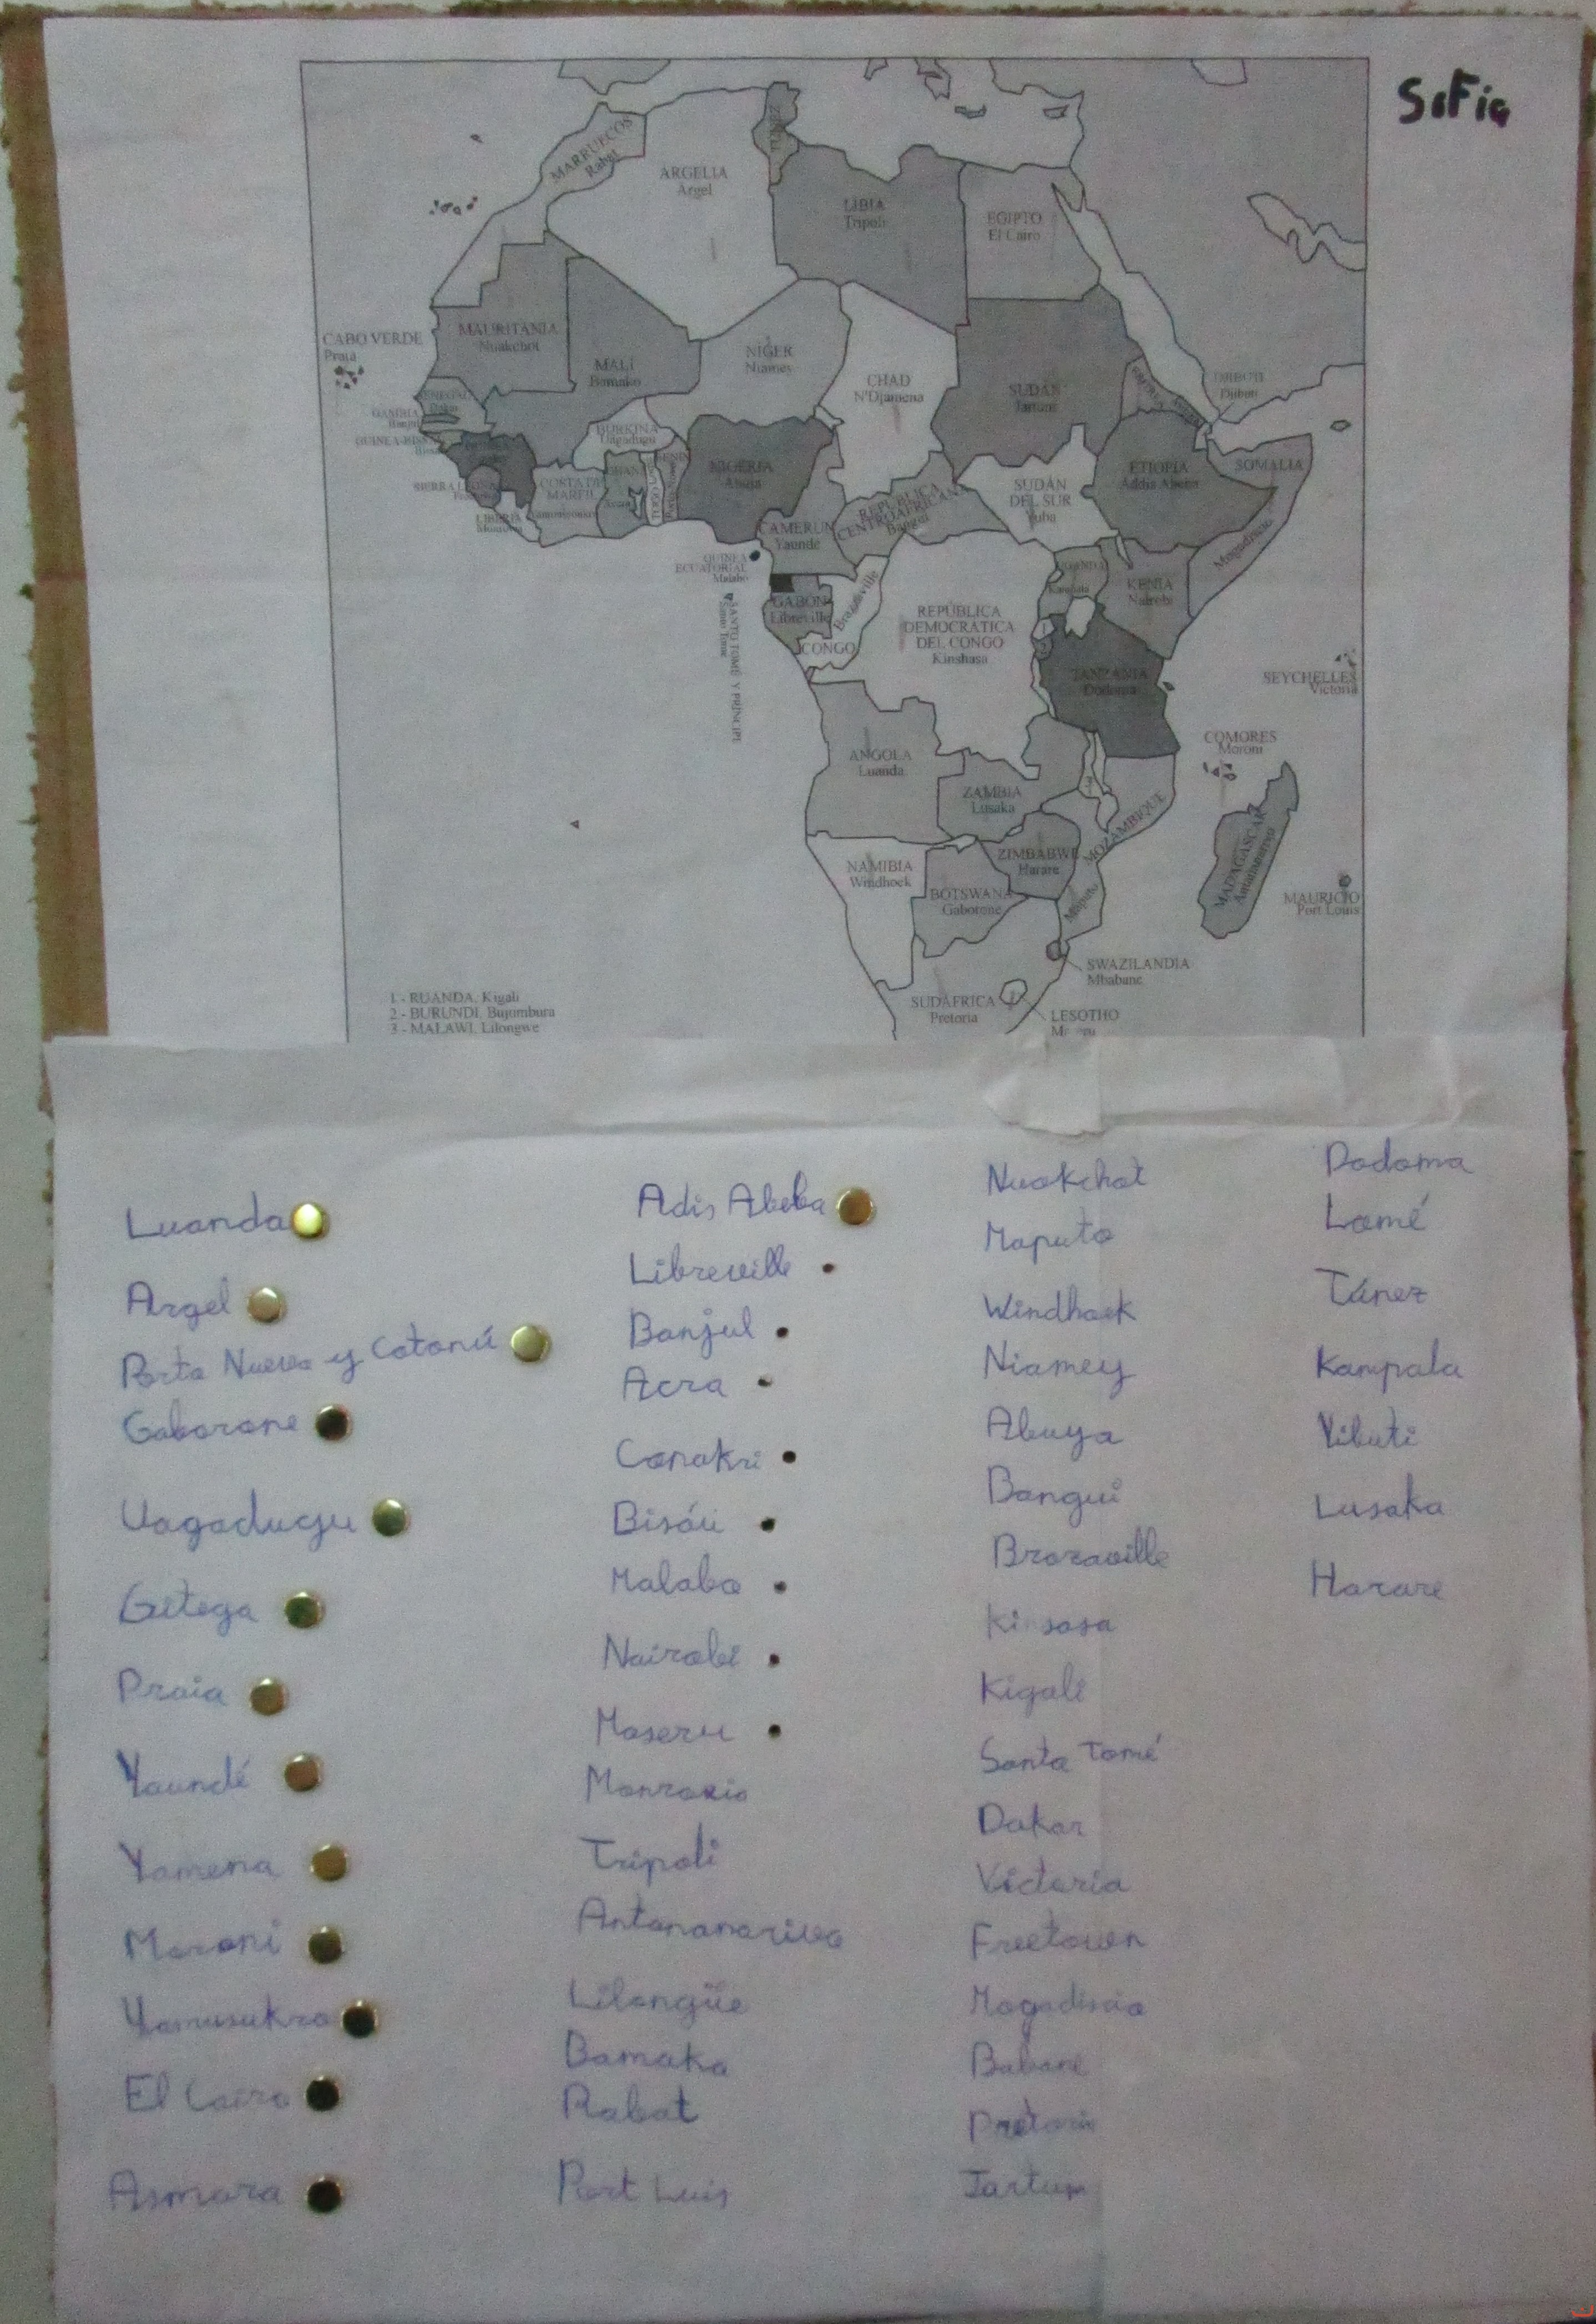 SoFia
MARRUECOS
Rabat
ARGELIA
Argel
LIBIA
Trípoli
EGIPTO
El Cairo
CABO VERDE
Praia
MAURITANIA
Nuakchot
MALÍ
Bamako
NÍGER
Niamey
CHAD
N'Djamena
SUDÁN
Jartum
DJIBUTI
Djibuti
SENEGAL
Dakar
GAMBIA
Banjul
BURKINA
Uagadugu
NIGERIA
Abuja
ETIOPÍA
Addis Abeba
SOMALIA
Mogadiscio
SIERRA LEONA
COSTA DE
MARFIL
LIBERIA
Monrovia
TOGO
REPÚBLICA
CENTROAFRICANA
Bangui
SUDÁN
DEL SUR
Yuba
CAMERÚN
Yaunde
GUINEA
ECUATORIAL
Malabo
UGANDA
Kampala
KENIA
Nairobi
GABÓN
Libreville
Brazzaville
CONGO
SANTO TOMÉ Y PRÍNCIPE
Santo Tomé
REPÚBLICA
DEMOCRÁTICA
DEL CONGO
Kinshasa
1
2
TANZANIA
Dodoma
SEYCHELLES
Victoria
COMORES
Moroni
ANGOLA
Luanda
ZAMBIA
Lusaka
MOZAMBIQUE
Maputo
ZIMBABWE
Harare
MADAGASCAR
Antananarivo
NAMIBIA
Windhoek
BOTSWANA
Gaborone
MAURICIO
Port Louis
SWAZILANDIA
Mbabane
SUDÁFRICA
Pretoria
LESOTHO
1 - RUANDA, Kigali
2 - BURUNDI, Bujumbura
3 - MALAWI, Lilongwe
Luanda
Argel
Porto Nuevo y Cotonú
Gaborone
Uagadugu
Gitega
Praia
Yaundé
Yamena
Moroni
Yamusukro
El Cairo
Asmara
Adis Abeba
Libreville
Banjul
Acra
Conakri
Bisáu
Malabo
Nairobi
Maseru
Monrovia
Trípoli
Antananarivo
Lilongüe
Bamako
Rabat
Port Luis
Nuakchot
Maputo
Windhoek
Niamey
Abuya
Bangui
Brazaville
Kinsasa
Kigali
Santo Tomé
Dakar
Victoria
Freetown
Mogadiscio
Babane
Pretoria
Jartum
Dodoma
Lomé
Túnez
Kampala
Yibuti
Lusaka
Harare